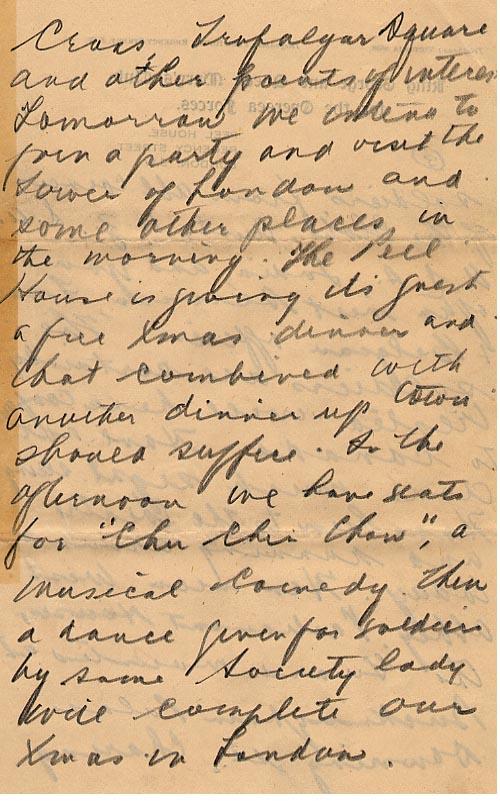 Cross, Trafalgar Square
and other points of interes
Tomorrow we intend to
join a party and visit the
Tower of London and
some other places in
the morning. The Peel
House is giving its guest
a free Xmas dinner and
that combined with
another dinner up town
should suffice. In the
afternoon we have seats
for "Chu Chin Chow", a
musical comedy. Then
a dance given for soldiers
by some Society lady
will complete our
Xmas in London.